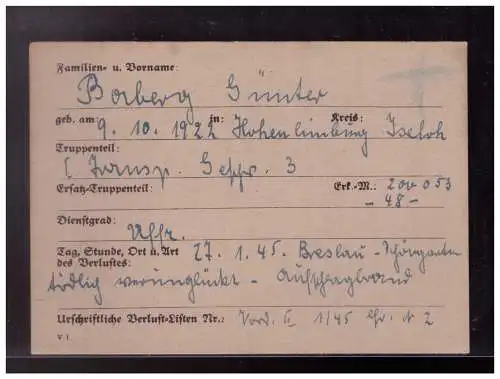 Familien- u. Vorname:
Borberg Günter
geb. am: 9. 10. 1922 in: Hohenlimburg Kreis: Iseloh
Truppenteil:
Transp. 3
Ersatz-Truppenteil: Erk.-M.: 200 053
- 48 -
Dienstgrad: Uffz.
Tag, Stunde, Ort u. Art 27. 1. 45. Breslau -
des Verlustes:
tödlich verunglückt -
Urschriftliche Verlust-Listen Nr.: Vord. II 1/45 2
V 1.